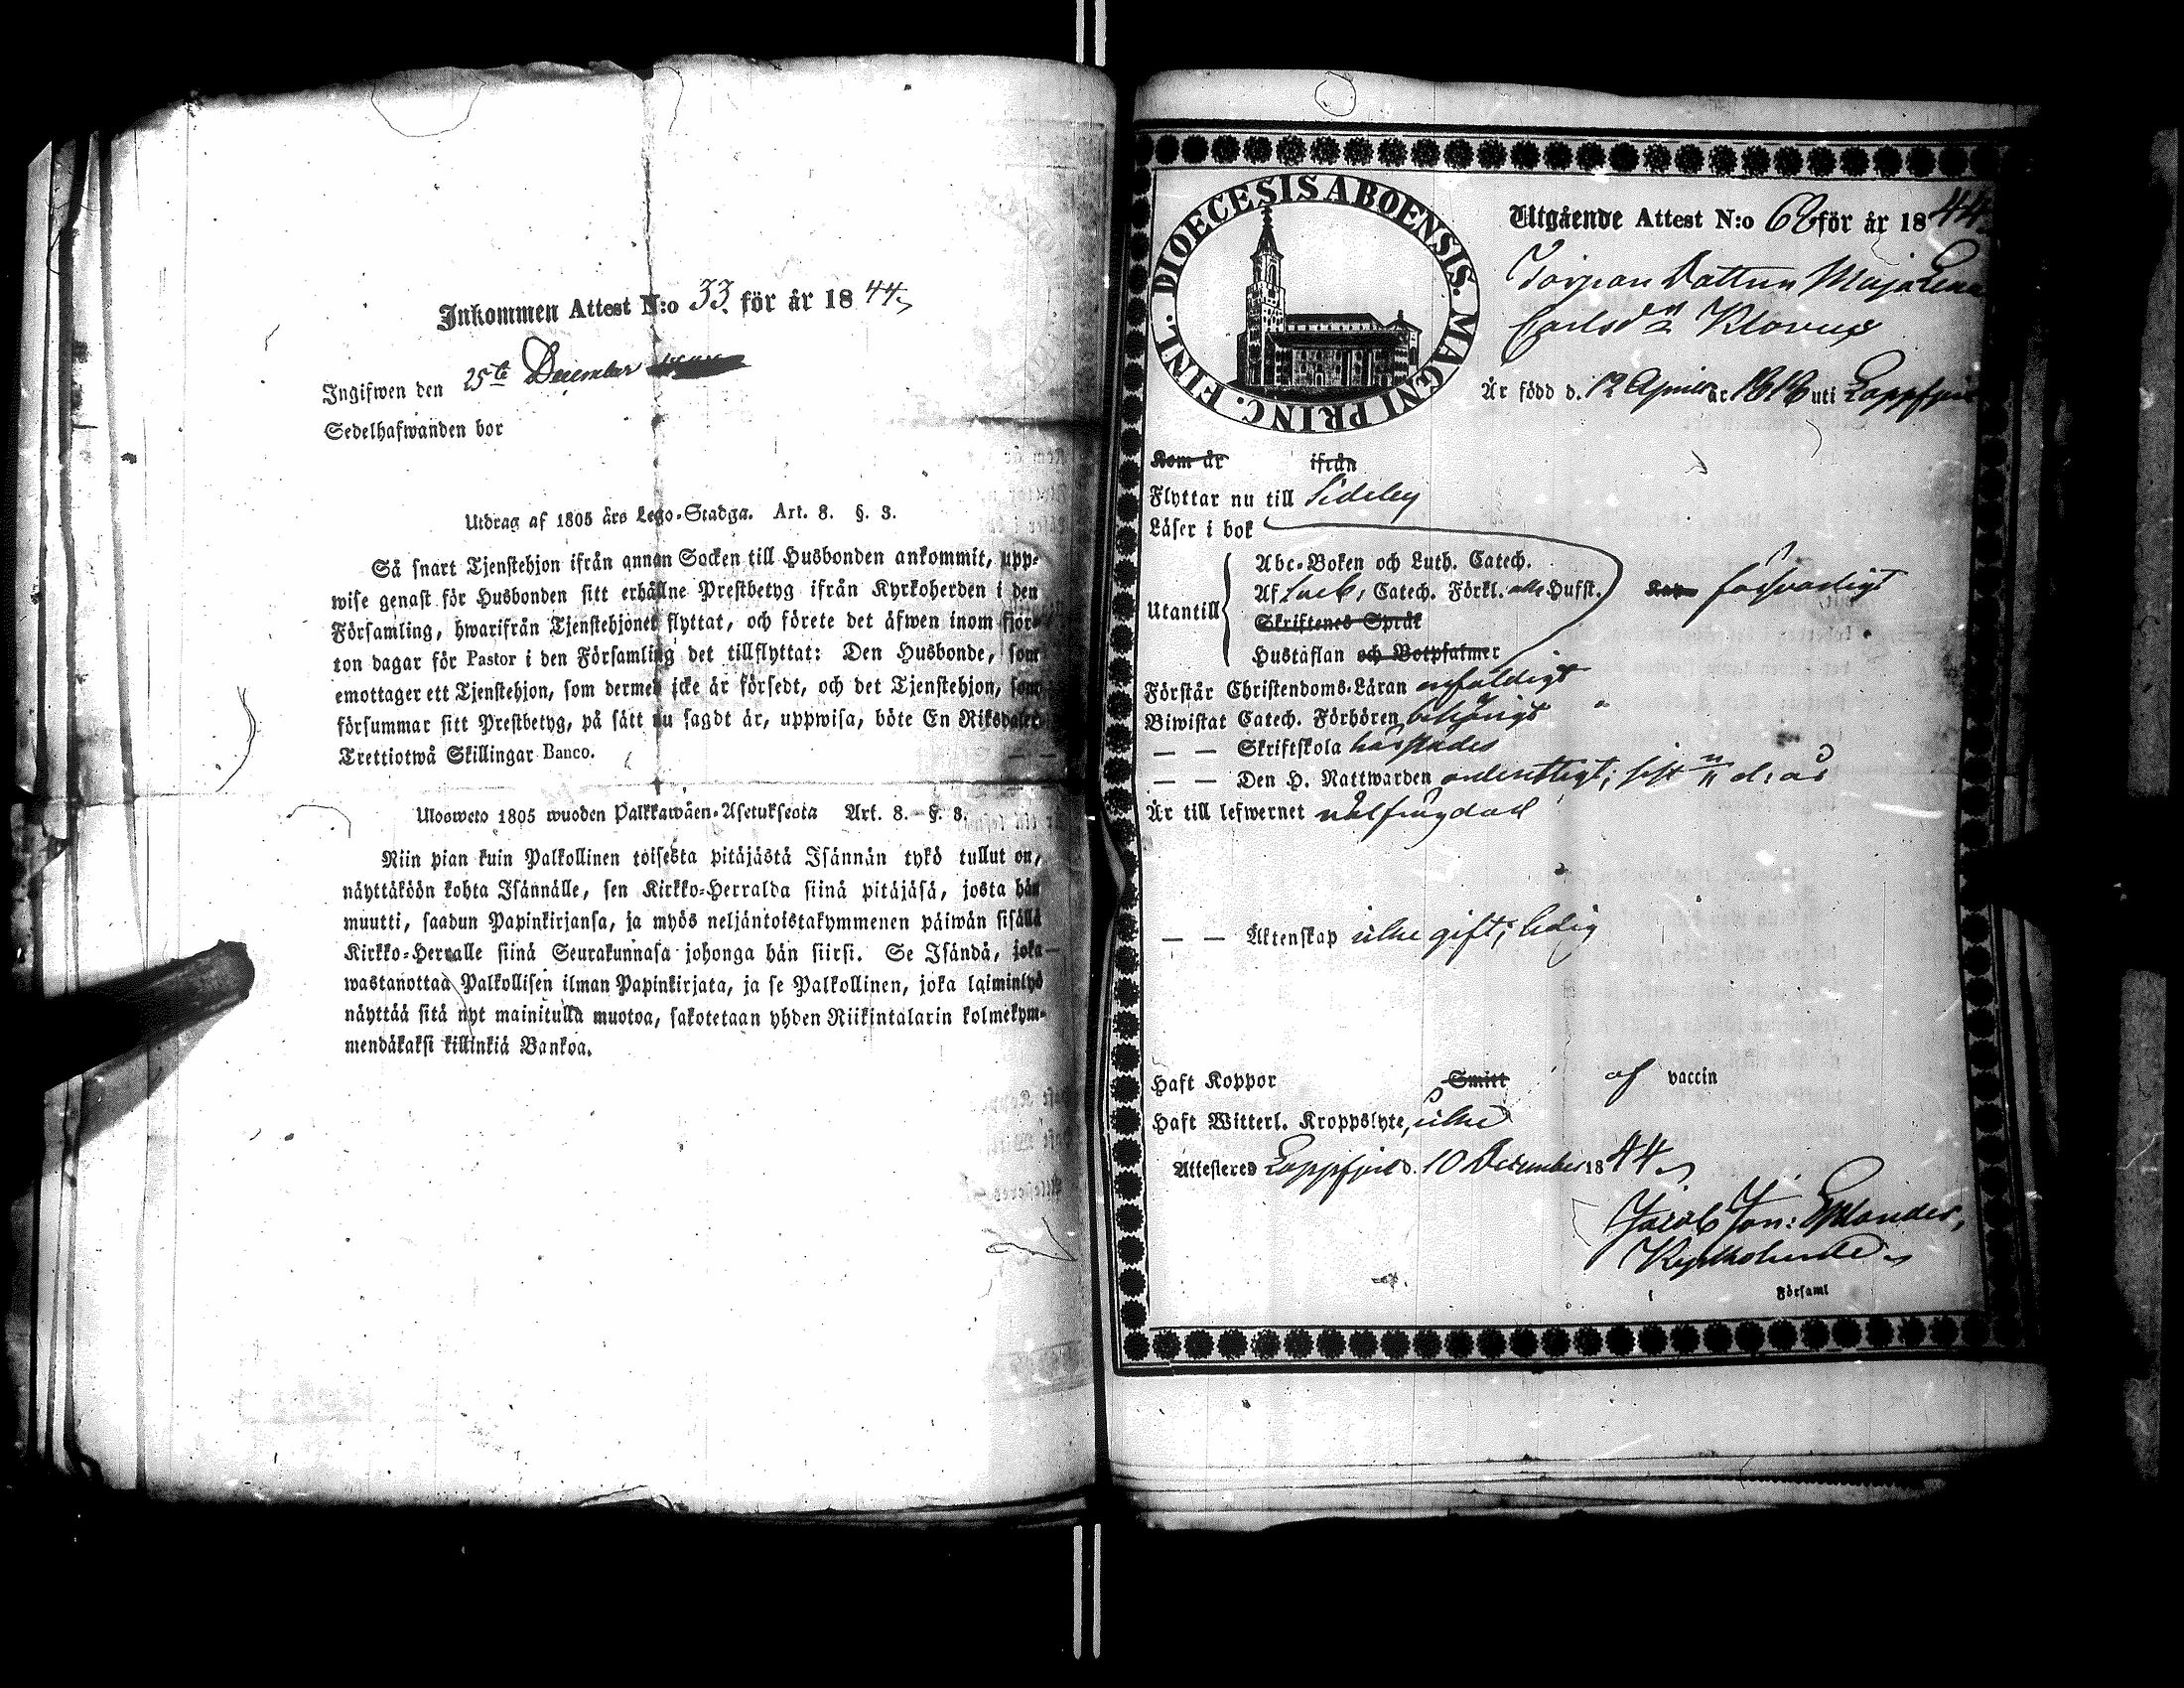 Inkommen Attest N:o 33. för år 1844
Ingifwen den 25te December
Sedelhafwanden bor
Utdrag af 1805 års Lego-Stadga. Art. 8. §. 3.
Så snart Tjenstehjon ifrån annan Socken till Husbonden ankommit, upp-
wise genast för Husbonden sitt erhållne Prestbetyg ifrån Kyrkoherden i den
Församling, hwarifrån Tjenstehjonet flyttat, och förete det äfwen inom fjor-
ton dagar för Pastor i den Församling det tillflyttat: Den Husbonde, som
emottager ett Tjenstehjon, som dermed icke är försedt, och det Tjenstehjon, som
försummar sitt Prestbetyg, på sätt nu sagdt är, uppwisa, böte En Riksdaler
Trettiotwå Skillingar Banco.
Ulosweto 1805 wuoden Palkkawäen-Asetuksesta Art. 8. §. 3.
Niin pian kuin Palkollinen toisesta pitäjästä Isännän tykö tullut on,
näyttäköön kohta Isännälle, sen Kirkko-Herralda siinä pitäjäsä, josta hän
muutti, saadun Papinkirjansa, ja myös neljäntoistakymmenen päiwän sisällä
Kirkko-Herralle siinä Seurakunnasa johonga hän siirsi. Se Isändä, joka
wastanottaa Palkollisen ilman Papinkirjata, ja se Palkollinen, joka laiminlyö
näyttää sitä nyt mainitulla muotoa, sakotetaan yhden Riikintalarin kolmekym-
mendäkaksi killinkiä Bankoa.
DIOECESIS ABOENSIS. MAGNI PRINC. FINL.
Utgående Attest N:o 68 för år 1844
Torpan Dottren Maja Lena
Carlsdr Klarup
Är född d. 12 April år 1818 uti Lappfjerd
Kom år ifrån
Flyttar nu till Sideby
Läser i bok
Utantill
Abc-Boken och Luth. Catech.
Af Catech. Förkl. alla Hufst.
Skriftenes Språk
Hustaflan och Botpsalmer
försvarligt
Förstår Christendoms-Läran enfaldigt
Biwistat Catech. Förhören behörigt
— — Skriftskola härstädes
— — Den H. Nattwarden ordentligt; sist d. år
Är till lefwernet välfrägdad
— — Äktenskap icke gift; ledig
Haft Koppor Smitt af vaccin
Haft Witterl. Kroppslyte, icke
Attesteres Lappfjerd d. 10 December 1844
Jacob Jon: Estlander,
Kyrkoherde
i Församl